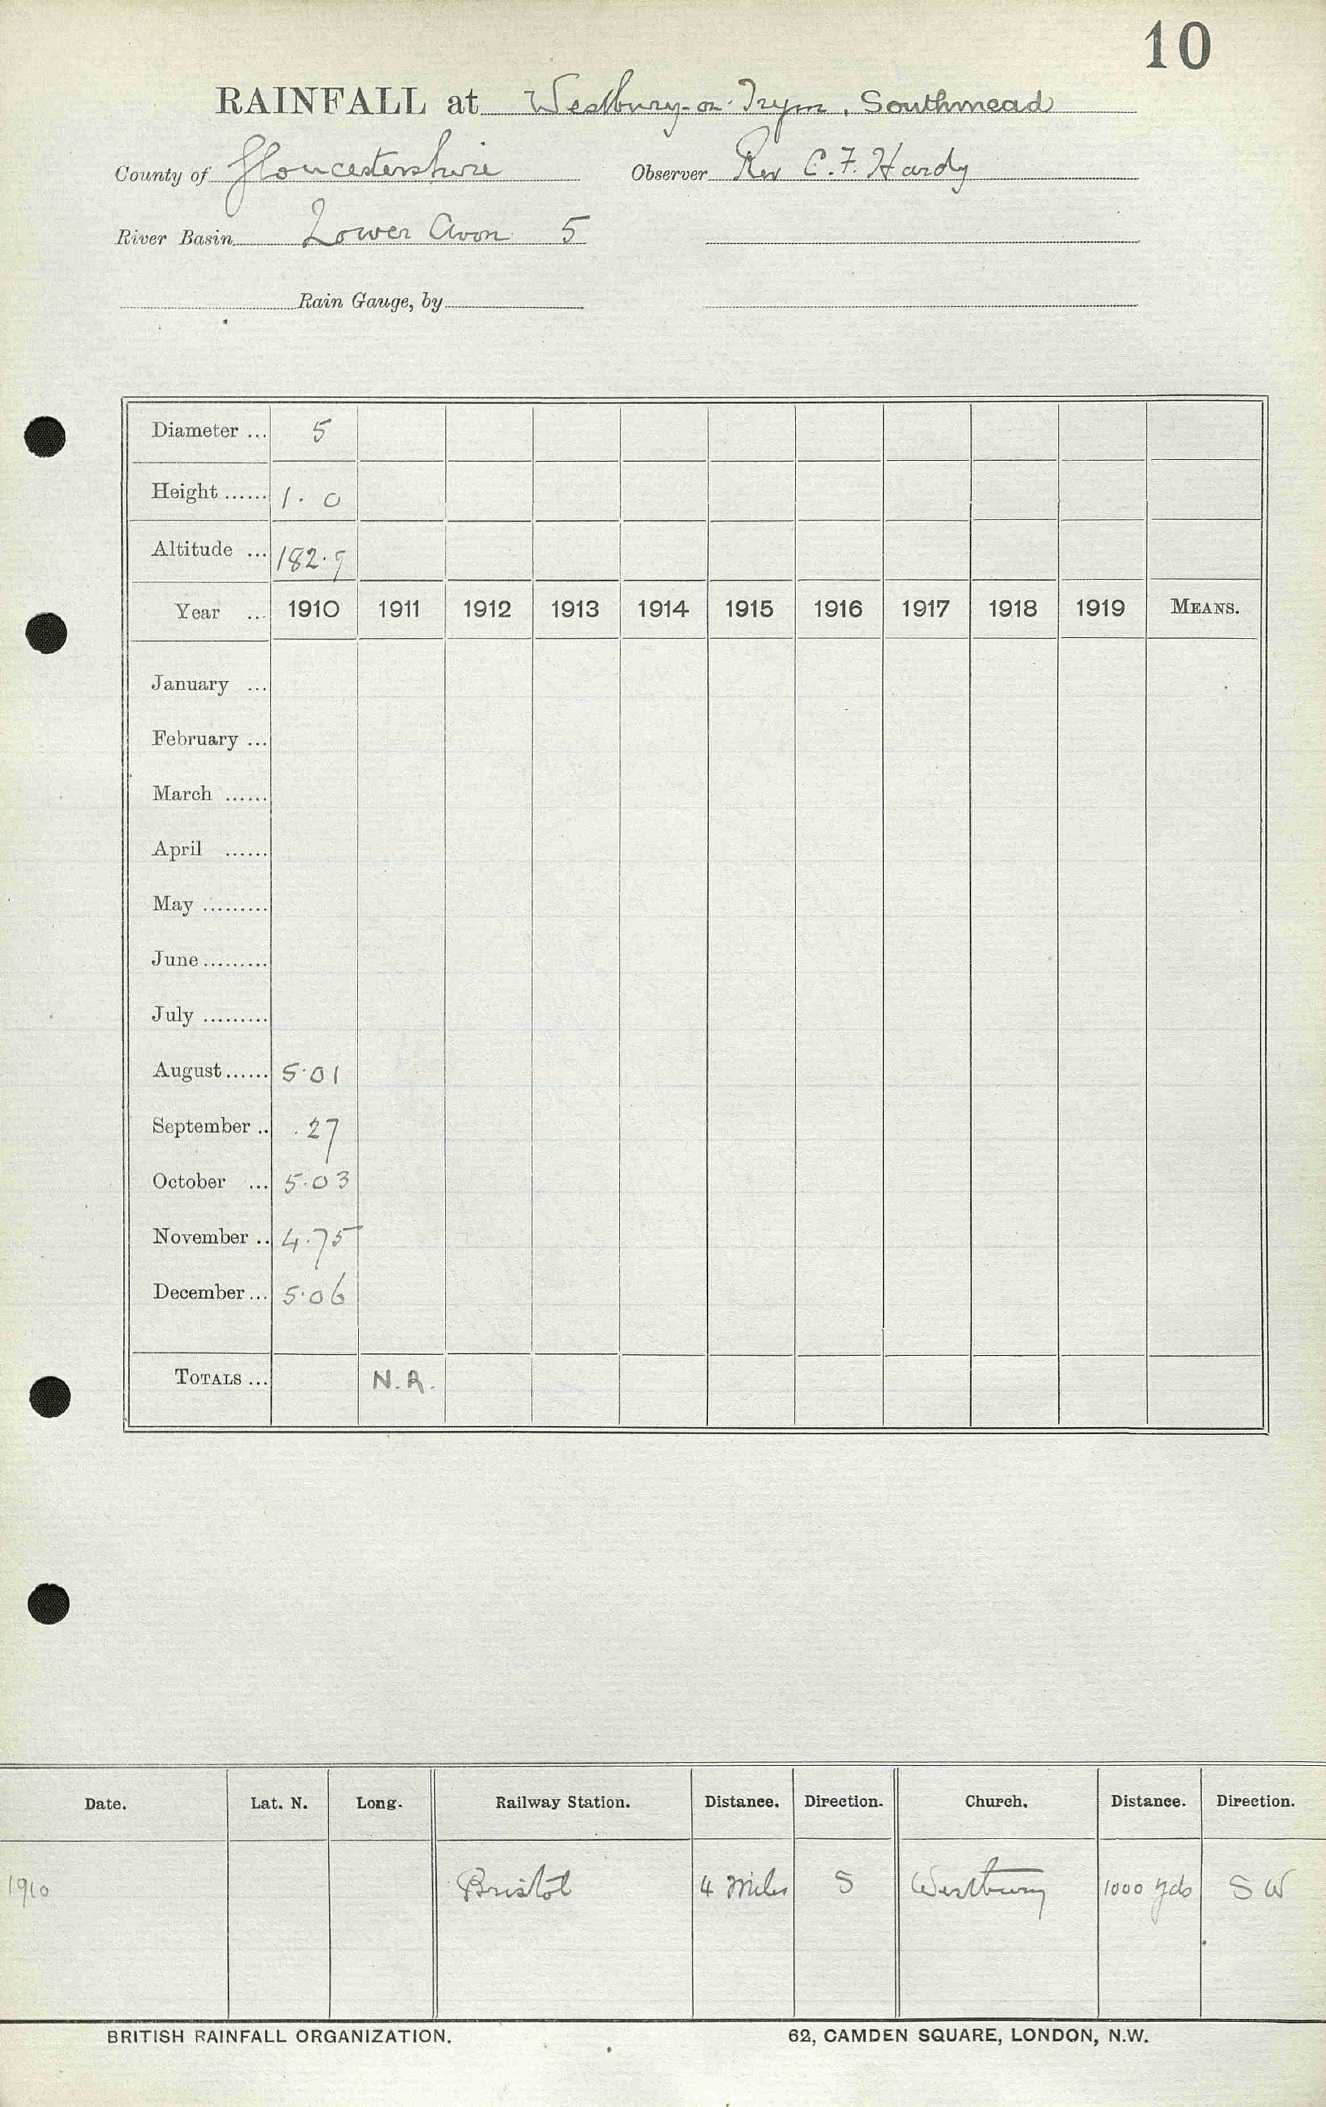 10
RAINFALL at Westbury-on-Trym, Southmead
County of Gloucestershire Observer Rev C. F. Hardy
River Basin Lower Avon 5
Rain Gauge, by
Diameter ... 5
Height ...... 1. 0
Altitude ... 182.9
Year ... 1910 1911 1912 1913 1914 1915 1916 1917 1918 1919 MEANS.
January ...
February ...
March ......
April ......
May .........
June .........
July .........
August ...... 5.01
September .. .27
October ... 5.03
November .. 4.75
December ... 5.06
TOTALS ... N.R.
Date. Lat. N. Long. Railway Station. Distance. Direction. Church. Distance. Direction.
1910 Bristol 4 Miles S Westbury 1000 yds SW
BRITISH RAINFALL ORGANIZATION. 62, CAMDEN SQUARE, LONDON, N.W.